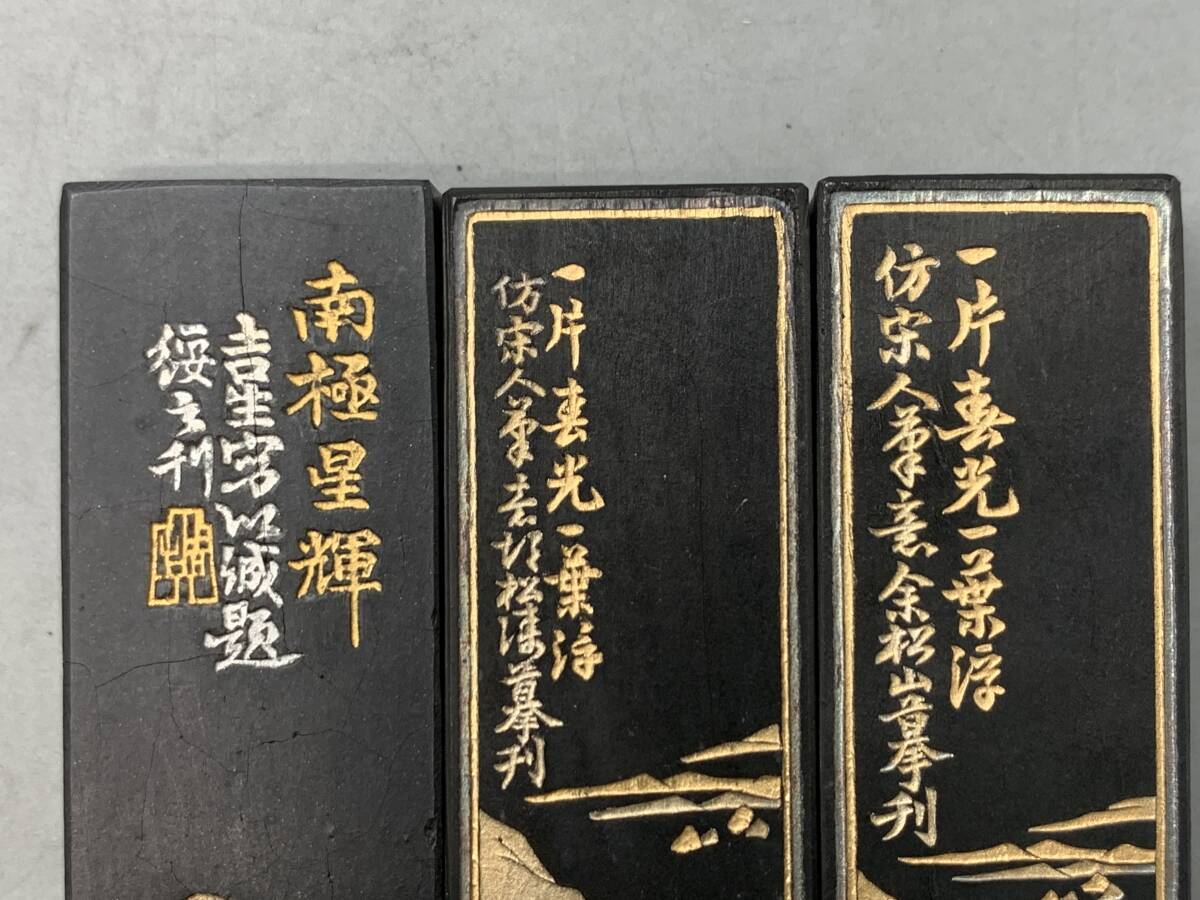 南極星輝
吉生 以誠題
綏之刊
一片春光一葉浮
仿宋人筆意 松濤摹刊
一片春光一葉浮
仿宋人筆意余松山摹刊